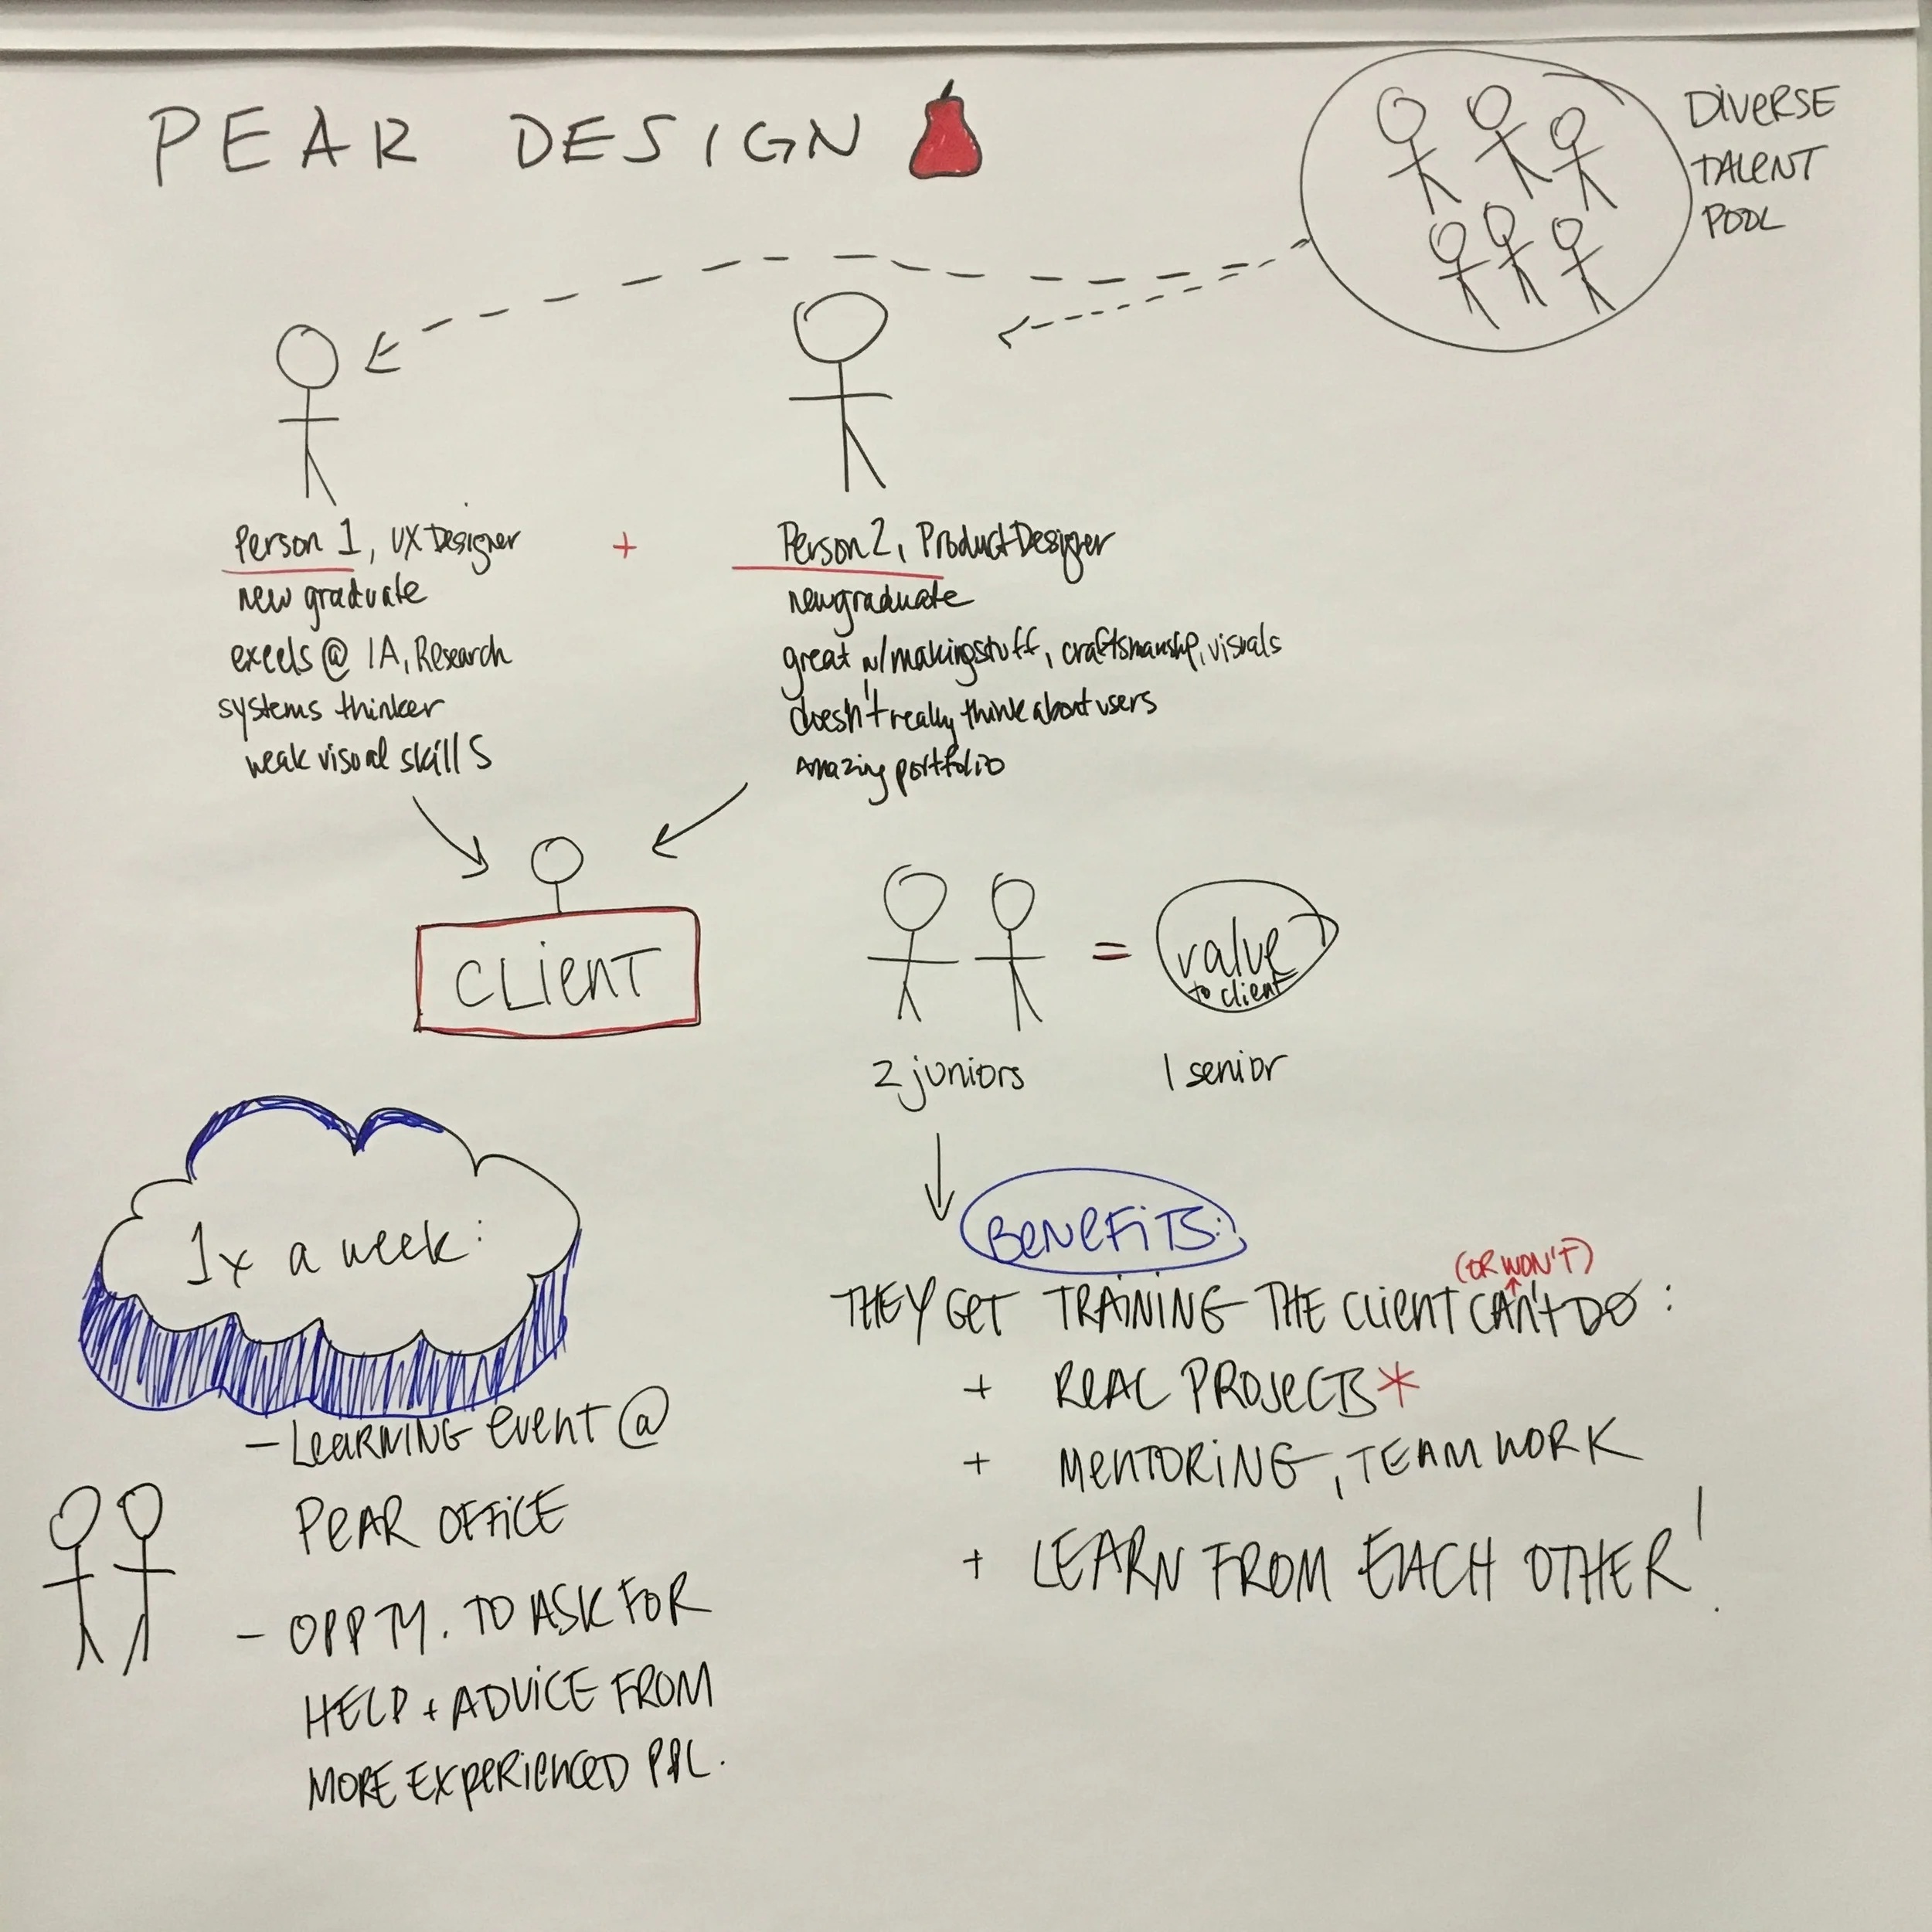 PEAR DESIGN
DIVERSE
TALENT
POOL
Person 1, UX Designer
new graduate
excels @ IA, Research
systems thinker
weak visual skills
+
Person 2, Product Designer
new graduate
great w/ making stuff, craftsmanship, visuals
doesn't really think about users
amazing portfolio
CLIENT
=
value
to client
2 juniors
1 senior
1x a week:
- LEARNING EVENT @
PEAR OFFICE
- OPPTY. TO ASK FOR
HELP + ADVICE FROM
MORE EXPERIENCED PPL.
BENEFITS:
(OR WON'T)
THEY GET TRAINING THE CLIENT CAN'T DO:
+ REAL PROJECTS*
+ MENTORING, TEAMWORK
+ LEARN FROM EACH OTHER!